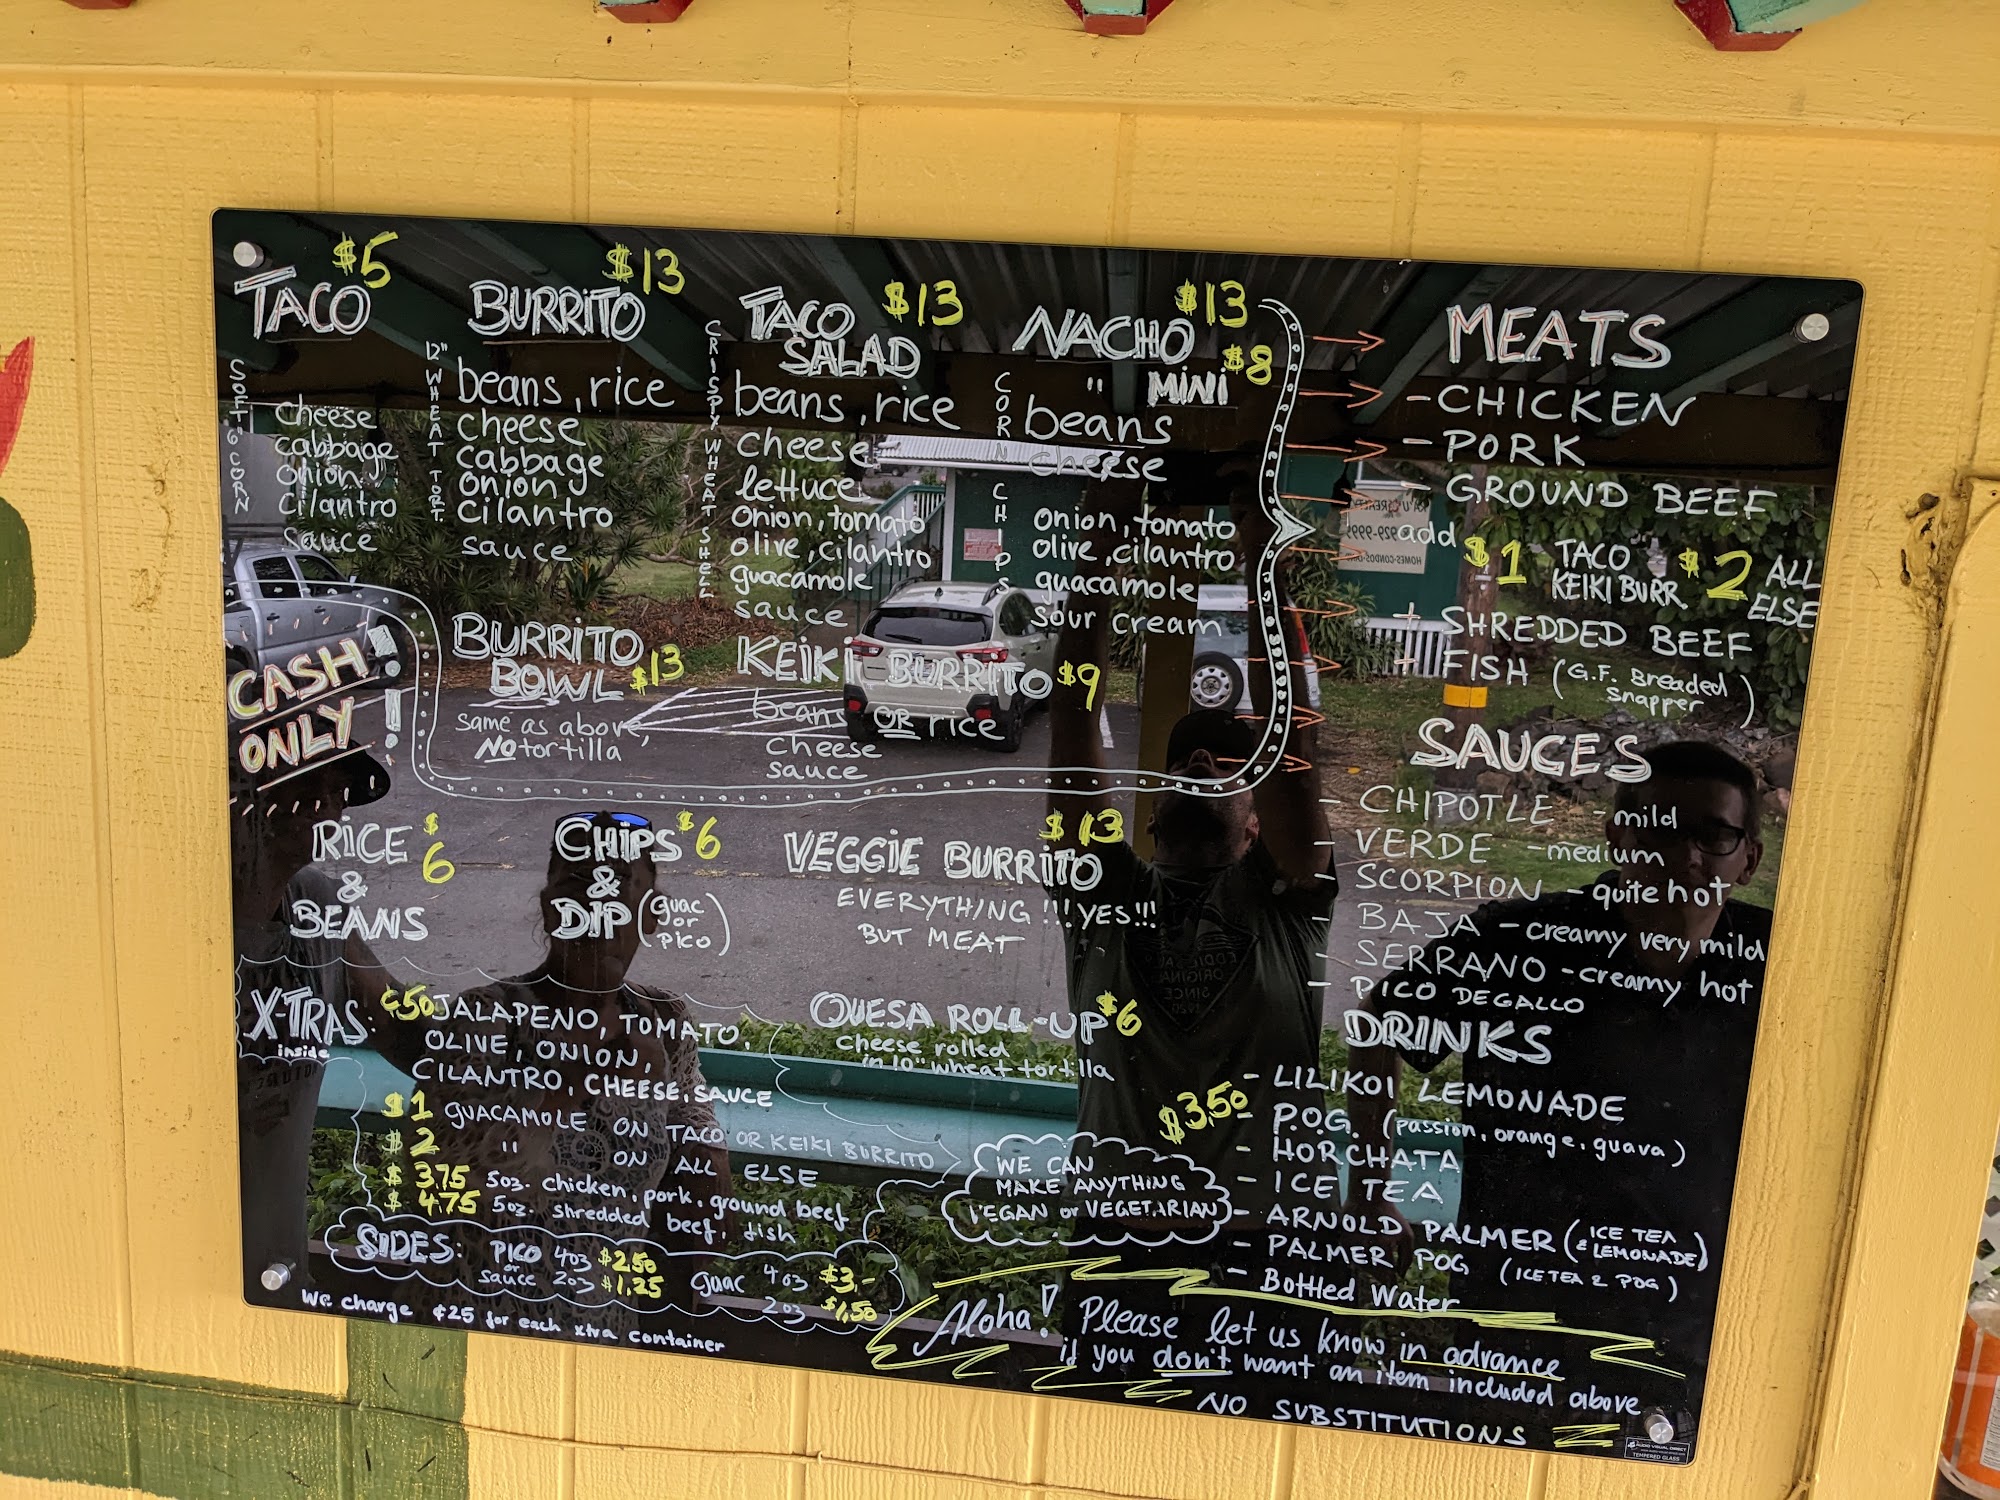 TACO $5
SOFT 6" CORN
cheese
cabbage
onion
cilantro
sauce
BURRITO $13
12" WHEAT TORT.
beans, rice
cheese
cabbage
onion
cilantro
sauce
TACO SALAD $13
CRISPY WHEAT SHELL
beans, rice
cheese
lettuce
onion, tomato
olive, cilantro
guacamole
sauce
NACHO $13
" MINI $8
CORN CHIPS
beans
cheese
onion, tomato
olive, cilantro
guacamole
sour cream
CASH
ONLY!!
BURRITO
BOWL $13
same as above,
NO tortilla
KEIKI BURRITO $9
beans OR rice
cheese
sauce
MEATS
- CHICKEN
- PORK
- GROUND BEEF
add $1 TACO KEIKI BURR $2 ALL ELSE
+ SHREDDED BEEF
+ FISH (G.F. Breaded Snapper)
SAUCES
- CHIPOTLE - mild
- VERDE - medium
- SCORPION - quite hot
- BAJA - creamy very mild
- SERRANO - creamy hot
- PICO DEGALLO
RICE $6
&
BEANS
CHIPS $6
&
DIP (guac or pico)
VEGGIE BURRITO $13
EVERYTHING!!! YES!!!
BUT MEAT
QUESA ROLL-UP $6
cheese rolled
in 10" wheat tortilla
X-TRAS: inside
¢50 JALAPENO, TOMATO,
OLIVE, ONION,
CILANTRO, CHEESE, SAUCE
$1 GUACAMOLE ON TACO OR KEIKI BURRITO
$2 " ON ALL ELSE
$3.75 5oz. chicken, pork, ground beef
$4.75 5oz. shredded beef, fish
SIDES: PICO 4oz $2.50 guac 4oz $3,-
or sauce 2oz $1,25 2oz $1,50
We charge ¢25 for each xtra container
WE CAN
MAKE ANYTHING
VEGAN or VEGETARIAN
DRINKS
$3,50
- LILIKOI LEMONADE
- P.O.G. (passion, orange, guava)
- HORCHATA
- ICE TEA
- ARNOLD PALMER (ICE TEA & LEMONADE)
- PALMER POG (ICE TEA & POG)
- Bottled Water
Aloha! Please let us know in advance
if you don't want an item included above
NO SUBSTITUTIONS
AUDIO VISUAL DIRECT
TEMPERED GLASS